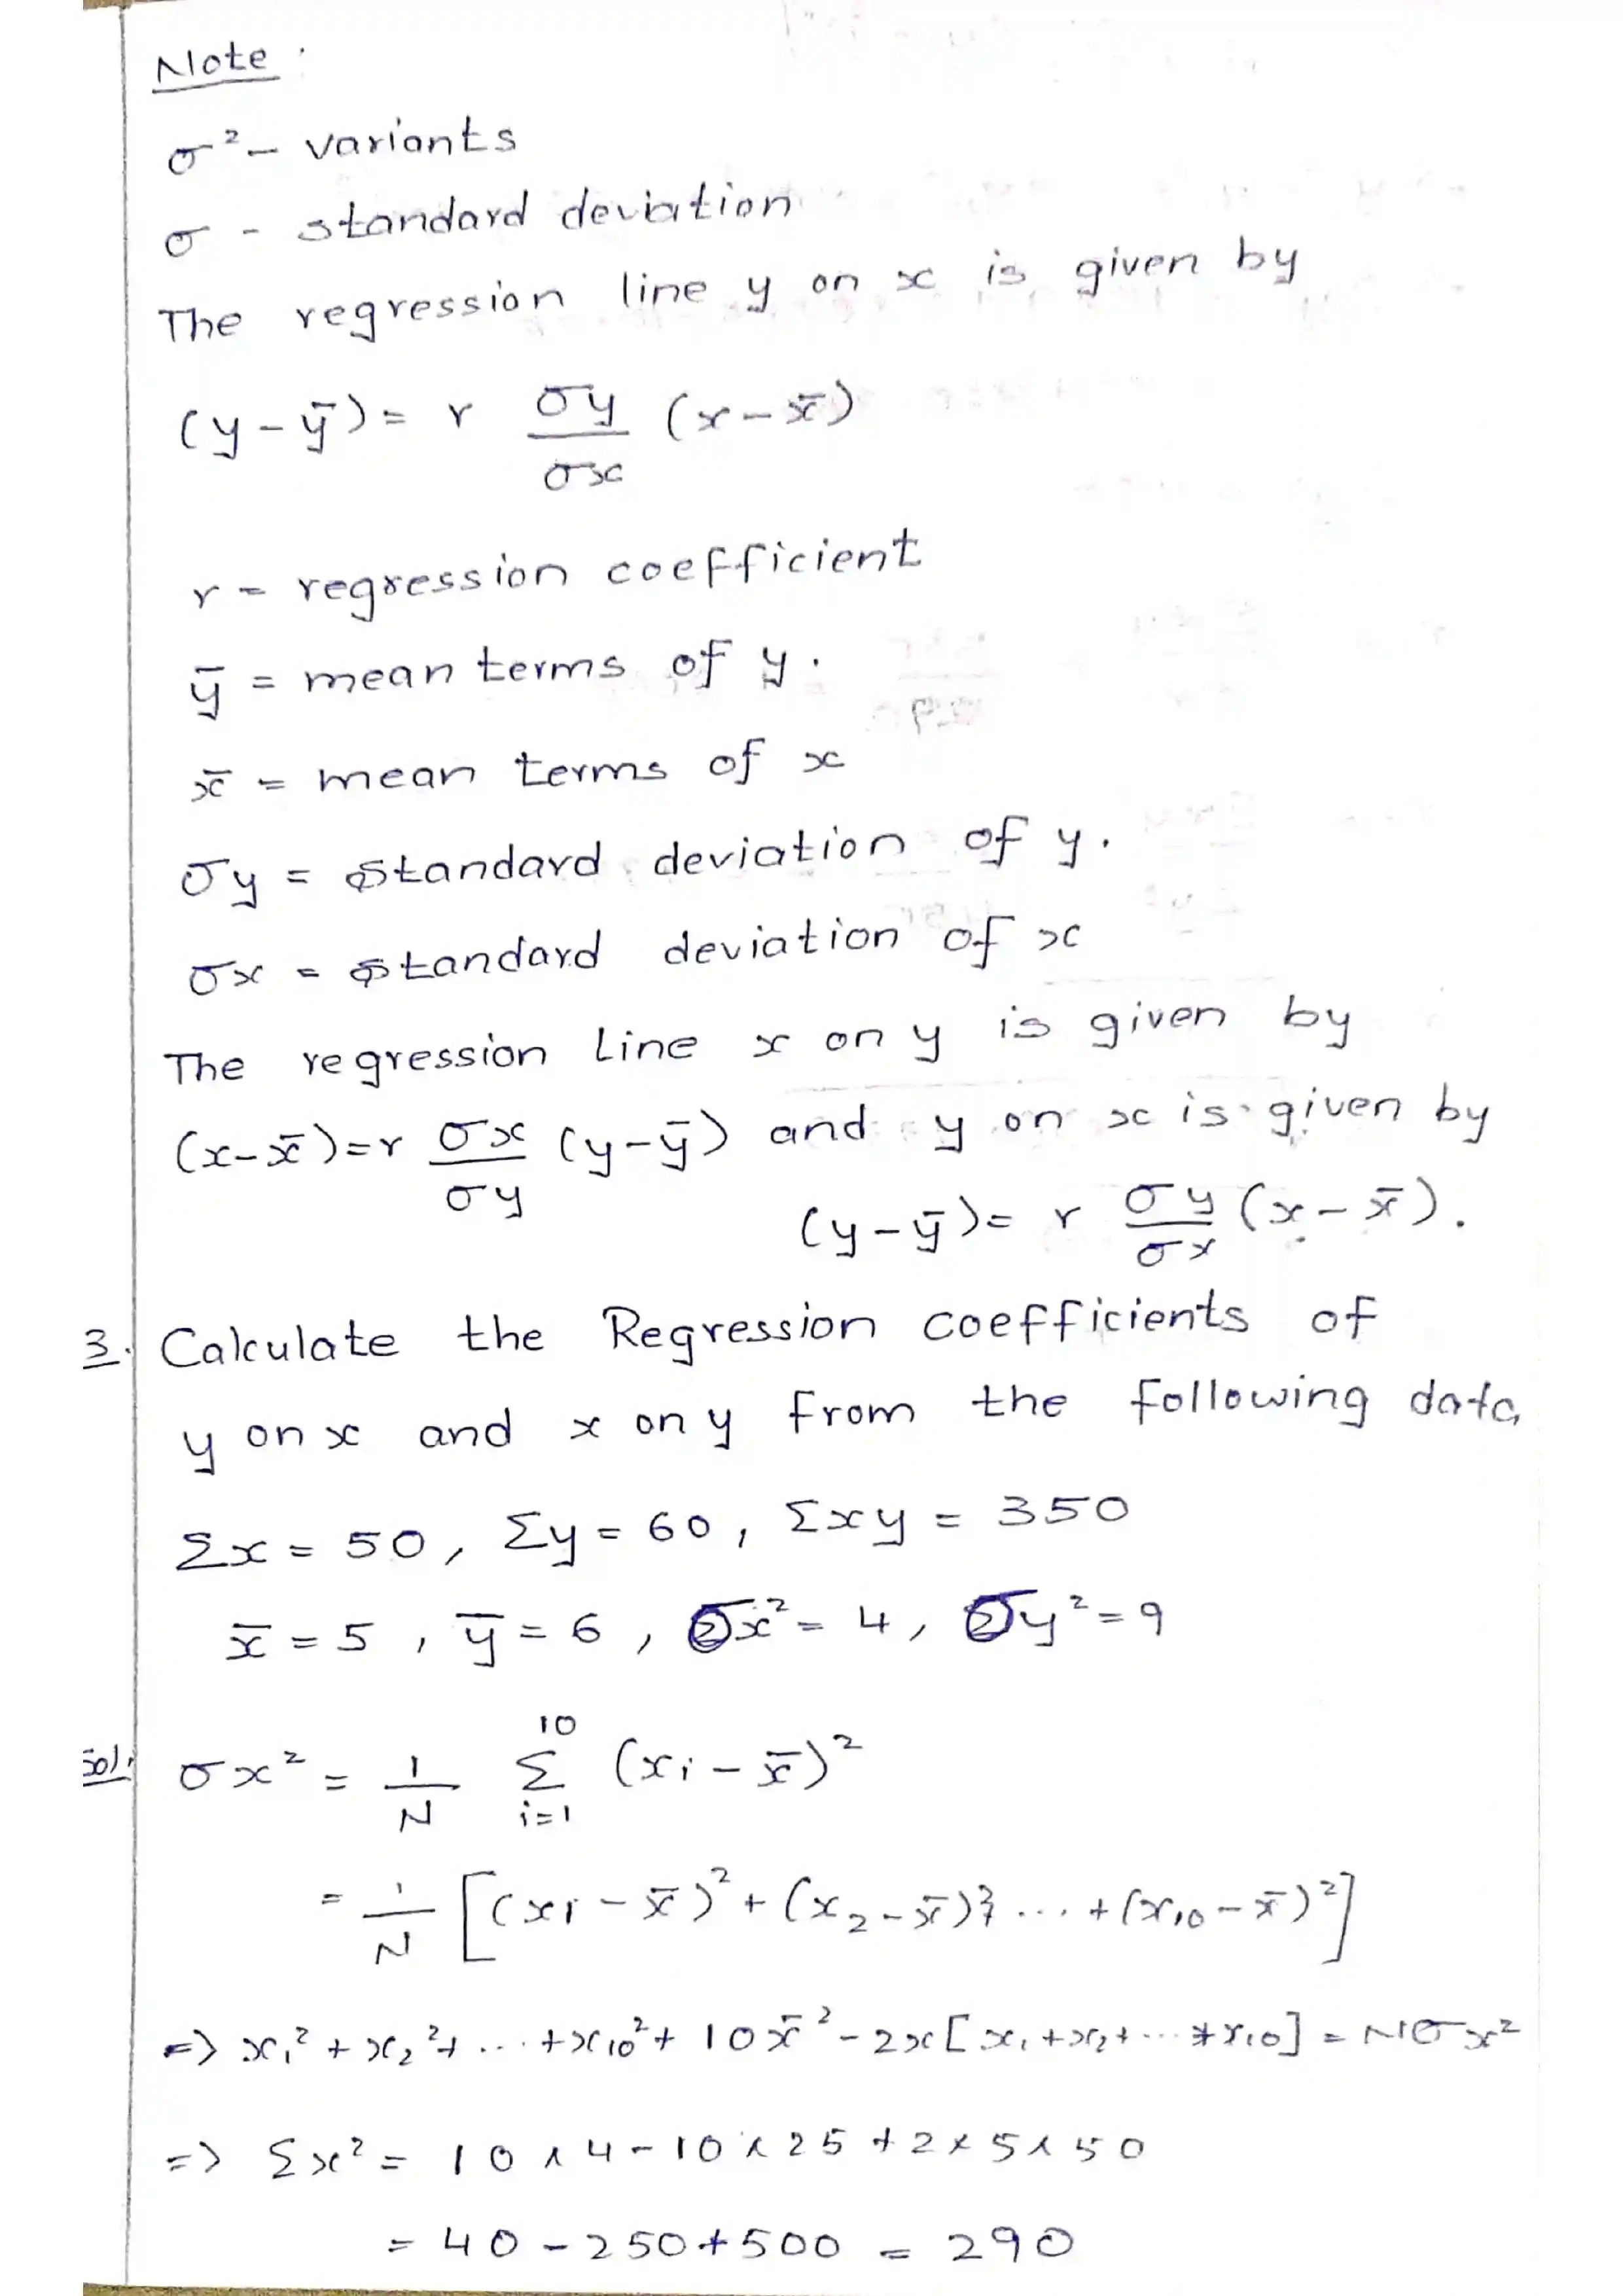 Note :
σ² - variants
σ - standard deviation
The regression line y on x is given by
(y - ȳ) = r σy/σx (x - x̄)
r = regression coefficient
ȳ = mean terms of y.
x̄ = mean terms of x
σy = Standard deviation of y.
σx = Standard deviation of x
The regression Line x on y is given by
(x - x̄) = r σx/σy (y - ȳ) and y on x is given by
(y - ȳ) = r σy/σx (x - x̄).
3. Calculate the Regression coefficients of
y on x and x on y from the following data
Σx = 50, Σy = 60, Σxy = 350
x̄ = 5, ȳ = 6, σx² = 4, σy² = 9
Sol: σx² = 1/N Σ_{i=1}^{10} (xi - x̄)²
= 1/N [(x1 - x̄)² + (x2 - x̄)² ... + (x10 - x̄)²]
=> x1² + x2² + ... + x10² + 10x̄² - 2x[x1 + x2 + ... + x10] = Nσx²
=> Σx² = 10 x 4 - 10 x 25 + 2 x 5 x 50
= 40 - 250 + 500 = 290